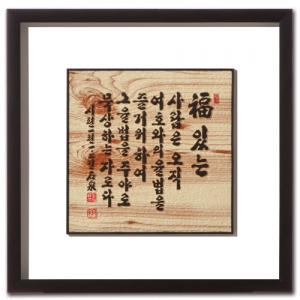 福있는
사람은오직
여호와의율법을
즐거워하여
그율법을주야로
묵상하는자로다
시편一·二